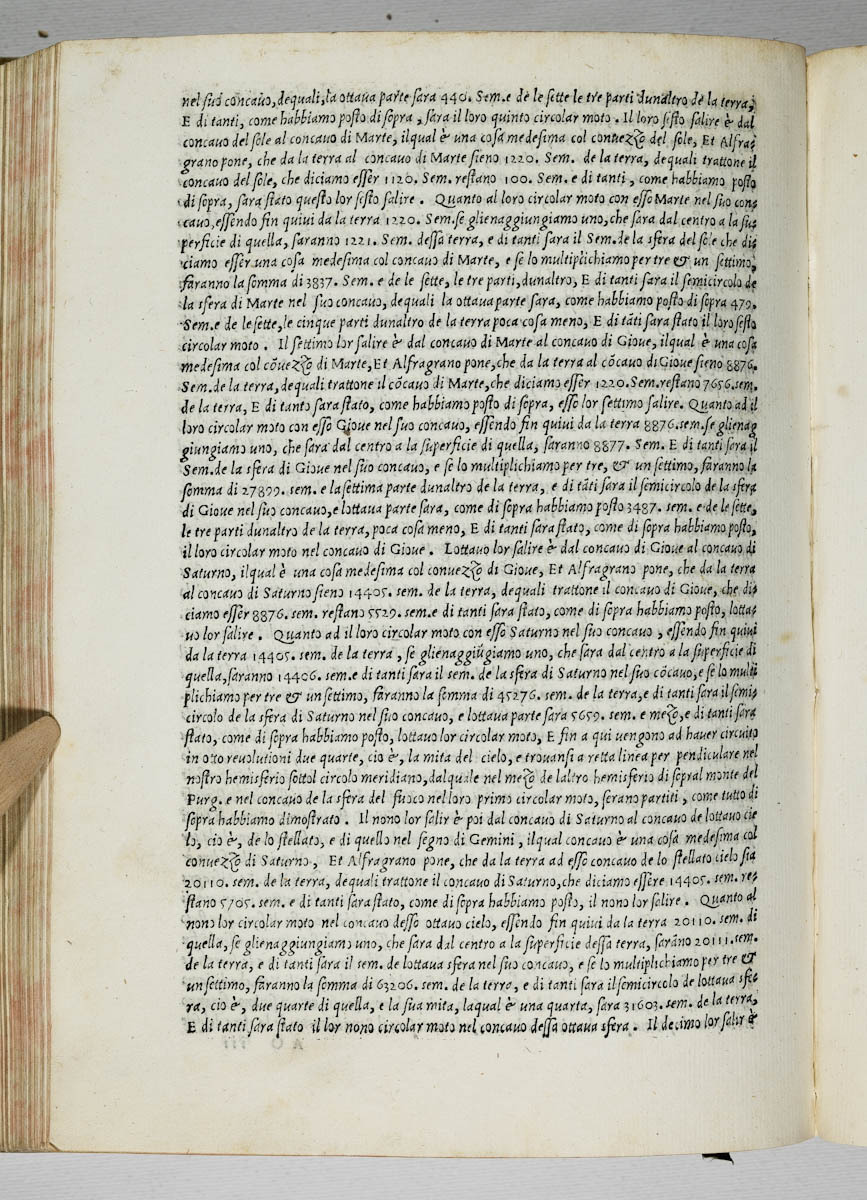 nel suo concauo, dequali, la ottaua parte sara 440. Sem. e de le sette le tre parti dunaltro de la terra,
E di tanti, come habbiamo posto di sopra, sara il loro quinto circolar moto. Il loro sisto salire è dal
concauo del sole al concauo di Marte, ilqual è una cosa medesima col conuezzo del sole, Et Alfra-
grano pone, che da la terra al concauo di Marte sieno 1220. Sem. de la terra, dequali trattone il
concauo del sole, che diciamo esser 1120. Sem. restano 100. Sem. e di tanti, come habbiamo posto
di sopra, sara stato questo lor sisto salire. Quanto al loro circolar moto con esso Marte nel suo con-
cauo, essendo fin quiui da la terra 1220. Sem. se glienaggiungiamo uno, che sara dal centro a la su-
perficie di quella, saranno 1221. Sem. dessa terra, e di tanti sara il Sem. de la sfera del sole che di-
ciamo esser una cosa medesima col concauo di Marte, e se lo multiplichiamo per tre & un settimo,
faranno la somma di 3837. Sem. e de le sette, le tre parti, dunaltro, E di tanti sara il semicircolo de
la sfera di Marte nel suo concauo, dequali la ottaua parte sara, come habbiamo posto di sopra 479.
Sem. e de le sette, le cinque parti dunaltro de la terra poca cosa meno, E di tāti sara stato il loro sisto
circolar moto. Il settimo lor salire è dal concauo di Marte al concauo di Gioue, ilqual è una cosa
medesima col cōuezzo di Marte, Et Alfragrano pone, che da la terra al cōcauo di Gioue sieno 8876.
Sem. de la terra, dequali trattone il cōcauo di Marte, che diciamo esser 1220. Sem. restano 7656. sem.
de la terra, E di tanto sara stato, come habbiamo posto di sopra, esso lor settimo salire. Quanto ad il
loro circolar moto con esso Gioue nel suo concauo, essendo fin quiui da la terra 8876. sem. se glienag
giungiamo uno, che sara dal centro a la superficie di quella, saranno 8877. Sem. E di tanti sara il
Sem. de la sfera di Gioue nel suo concauo, e se lo multiplichiamo per tre, & un settimo, faranno la
somma di 27899. sem. e la settima parte dunaltro de la terra, e di tāti sara il semicircolo de la sfera
di Gioue nel suo concauo, e lottaua parte sara, come di sopra habbiamo posto 3487. sem. e de le sette,
le tre parti dunaltro de la terra, poca cosa meno, E di tanti sara stato, come di sopra habbiamo posto,
il loro circolar moto nel concauo di Gioue. Lottauo lor salire è dal concauo di Gioue al concauo di
Saturno, ilqual è una cosa medesima col conuezzo di Gioue, Et Alfragrano pone, che da la terra
al concauo di Saturno sieno 14405. sem. de la terra, dequali trattone il concauo di Gioue, che di-
ciamo esser 8876. sem. restano 5529. sem. e di tanti sara stato, come di sopra habbiamo posto, lotta-
uo lor salire. Quanto ad il loro circolar moto con esso Saturno nel suo concauo, essendo fin quiui
da la terra 14405. sem. de la terra, se glienaggiūgiamo uno, che sara dal centro a la superficie di
quella, saranno 14406. sem. e di tanti sara il sem. de la sfera di Saturno nel suo cōcauo, e se lo multi
plichiamo per tre & un settimo, faranno la somma di 45276. sem. de la terra, e di tanti sara il semi-
circolo de la sfera di Saturno nel suo concauo, e lottaua parte sara 5659. sem. e mezo, e di tanti sara
stato, come di sopra habbiamo posto, lottauo lor circolar moto, E fin a qui uengono ad hauer circuito
in otto reuolutioni due quarte, cio è, la mita del cielo, e trouansi a retta linea per pendiculare nel
nostro hemisferio sottol circolo meridiano, dalquale nel mezo de laltro hemisferio di sopral monte del
Purg. e nel concauo de la sfera del fuoco nel loro primo circolar moto, serano partiti, come tutto di
sopra habbiamo dimostrato. Il nono lor salir è poi dal concauo di Saturno al concauo de lottauo cie
lo, cio è, de lo stellato, e di quello nel segno di Gemini, ilqual concauo è una cosa medesima col
conuezzo di Saturno, Et Alfragrano pone, che da la terra ad esso concauo de lo stellato cielo sia
20110. sem. de la terra, dequali trattone il concauo di Saturno, che diciamo essere 14405. sem. re-
stano 5705. sem. e di tanti sara stato, come di sopra habbiamo posto, il nono lor salire. Quanto al
nono lor circolar moto nel concauo desso ottauo cielo, essendo fin quiui da la terra 20110. sem. di
quella, se glienaggiungiamo uno, che sara dal centro a la superficie dessa terra, sarāno 20111. sem.
de la terra, e di tanti sara il sem. de lottaua sfera nel suo concauo, e se lo multiplichiamo per tre &
un settimo, faranno la somma di 63206. sem. de la terra, e di tanti sara il semicircolo de lottaua sfe-
ra, cio è, due quarte di quella, e la sua mita, laqual è una quarta, sara 31603. sem. de la terra,
E di tanti sara stato il lor nono circolar moto nel concauo dessa ottaua sfera. Il decimo lor salir è